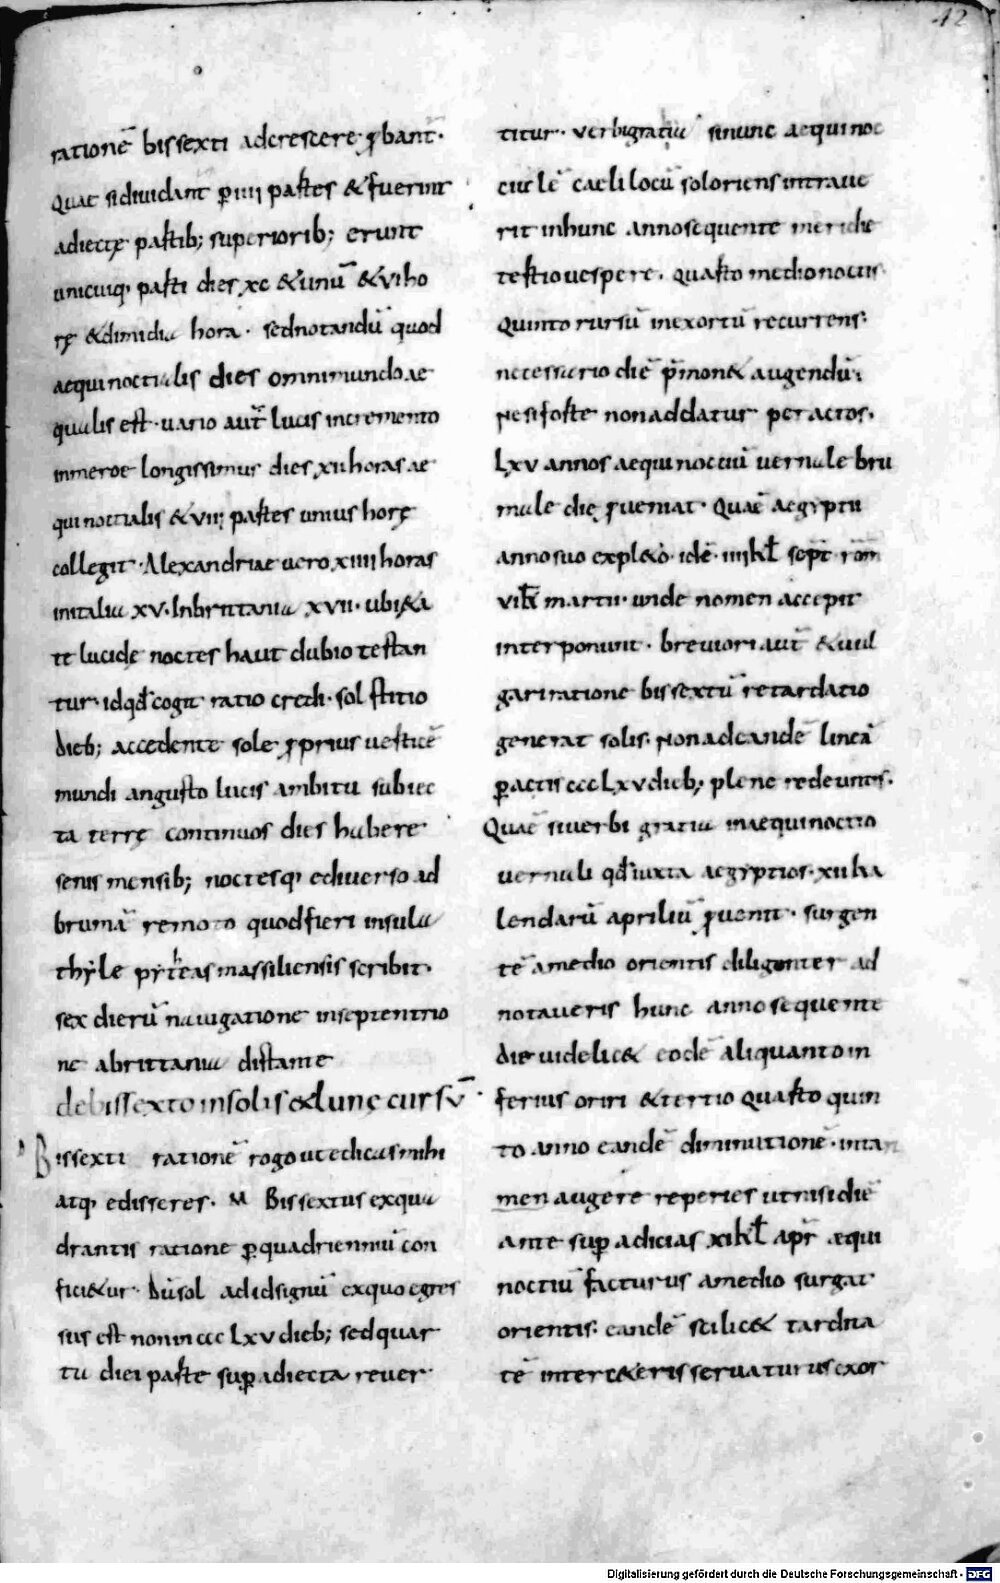 42
rationē bissexti adcrescere ꝓbant̄.
Quae sidiuidant̄ ꝑ iiii partes & fuerint
adiectę partib; superiorib; erunt
unicuiq; parti dies xc & unū & vi ho
rę & dimidia hora. sed notandū quod
aequinoctialis dies omni mundo ae
qualis est. uario aut̄ lucis incremento
inmeroe longissimus dies xii horas ae
quinoctialis & viii partes unius horę
collegit. Alexandriae uero xiiii horas
initalia xv. Inbrittania xvii. ubi ęsta
te lucide noctes haut dubio testan
tur. idqđ cogit ratio credi. solstitio
dieb; accedente sole ꝓprius uerticē
mundi angusto lucis ambitu subiec
ta terrę continuos dies habere
senis mensib; noctesq; ediuerso ad
brumā remoto quod fieri insula
thyle pytheas massiliensis scribit.
sex dierū nauigatione inseptentrio
ne abrittania distante
de bissexto in solis & lunę cursū.
Bissexti rationē rogo ut edicas mihi
atq; edisseres. M Bissextus ex qua
drantis ratione ꝑ quadrienniū con
fici&ur. Dū sol ad id signū ex quo egres
sus est non in ccc lxv dieb; sed quar
ta diei parte suꝑadiecta reuer
titur. verbi gratia si nunc aequinoc
ciūlē caeli locū sol oriens intraue
rit in hunc anno sequente meridie
tertio uespere. quarto medio noctis
Quinto rursū in exortū recurrens.
necessario diē p̄mon& augendū.
Ne si forte non addatur per actos.
Lxv annos aequinoctiū uernale bru
male die ꝓueniat. Quaē aegyptii
anno suo expl&o. idē. iiii kl̄ sept̄ rom̄
vi kl̄ martii. unde nomen accepit
interponunt. breuiori aut̄ & uul
gari ratione bissextū retardatio
generat solis. Non ad eandē lineā
ꝑactis ccc Lxv dieb; plene redeuntis.
Quaē si uerbi gratia inaequinoctio
uernali qđ iuxta aegyptios. xii ka
lendarū apriliū ꝓuenit. surgen
tē amedio orientis diligenter ad
notaueris hunc anno sequente
die uidelic& eodē aliquanto in
ferius oriri & tertio quarto quin
to anno eandē diminutionē. intan
men augere reperies ut nisi diē
ante suꝑ adicias xi kl̄ apr̄ ęqui
noctiū facturus amedio surgat
orientis. eandē scilic& tardita
tē inter c&eris seruaturus exor
Digitalisierung gefördert durch die Deutsche Forschungsgemeinschaft - DFG